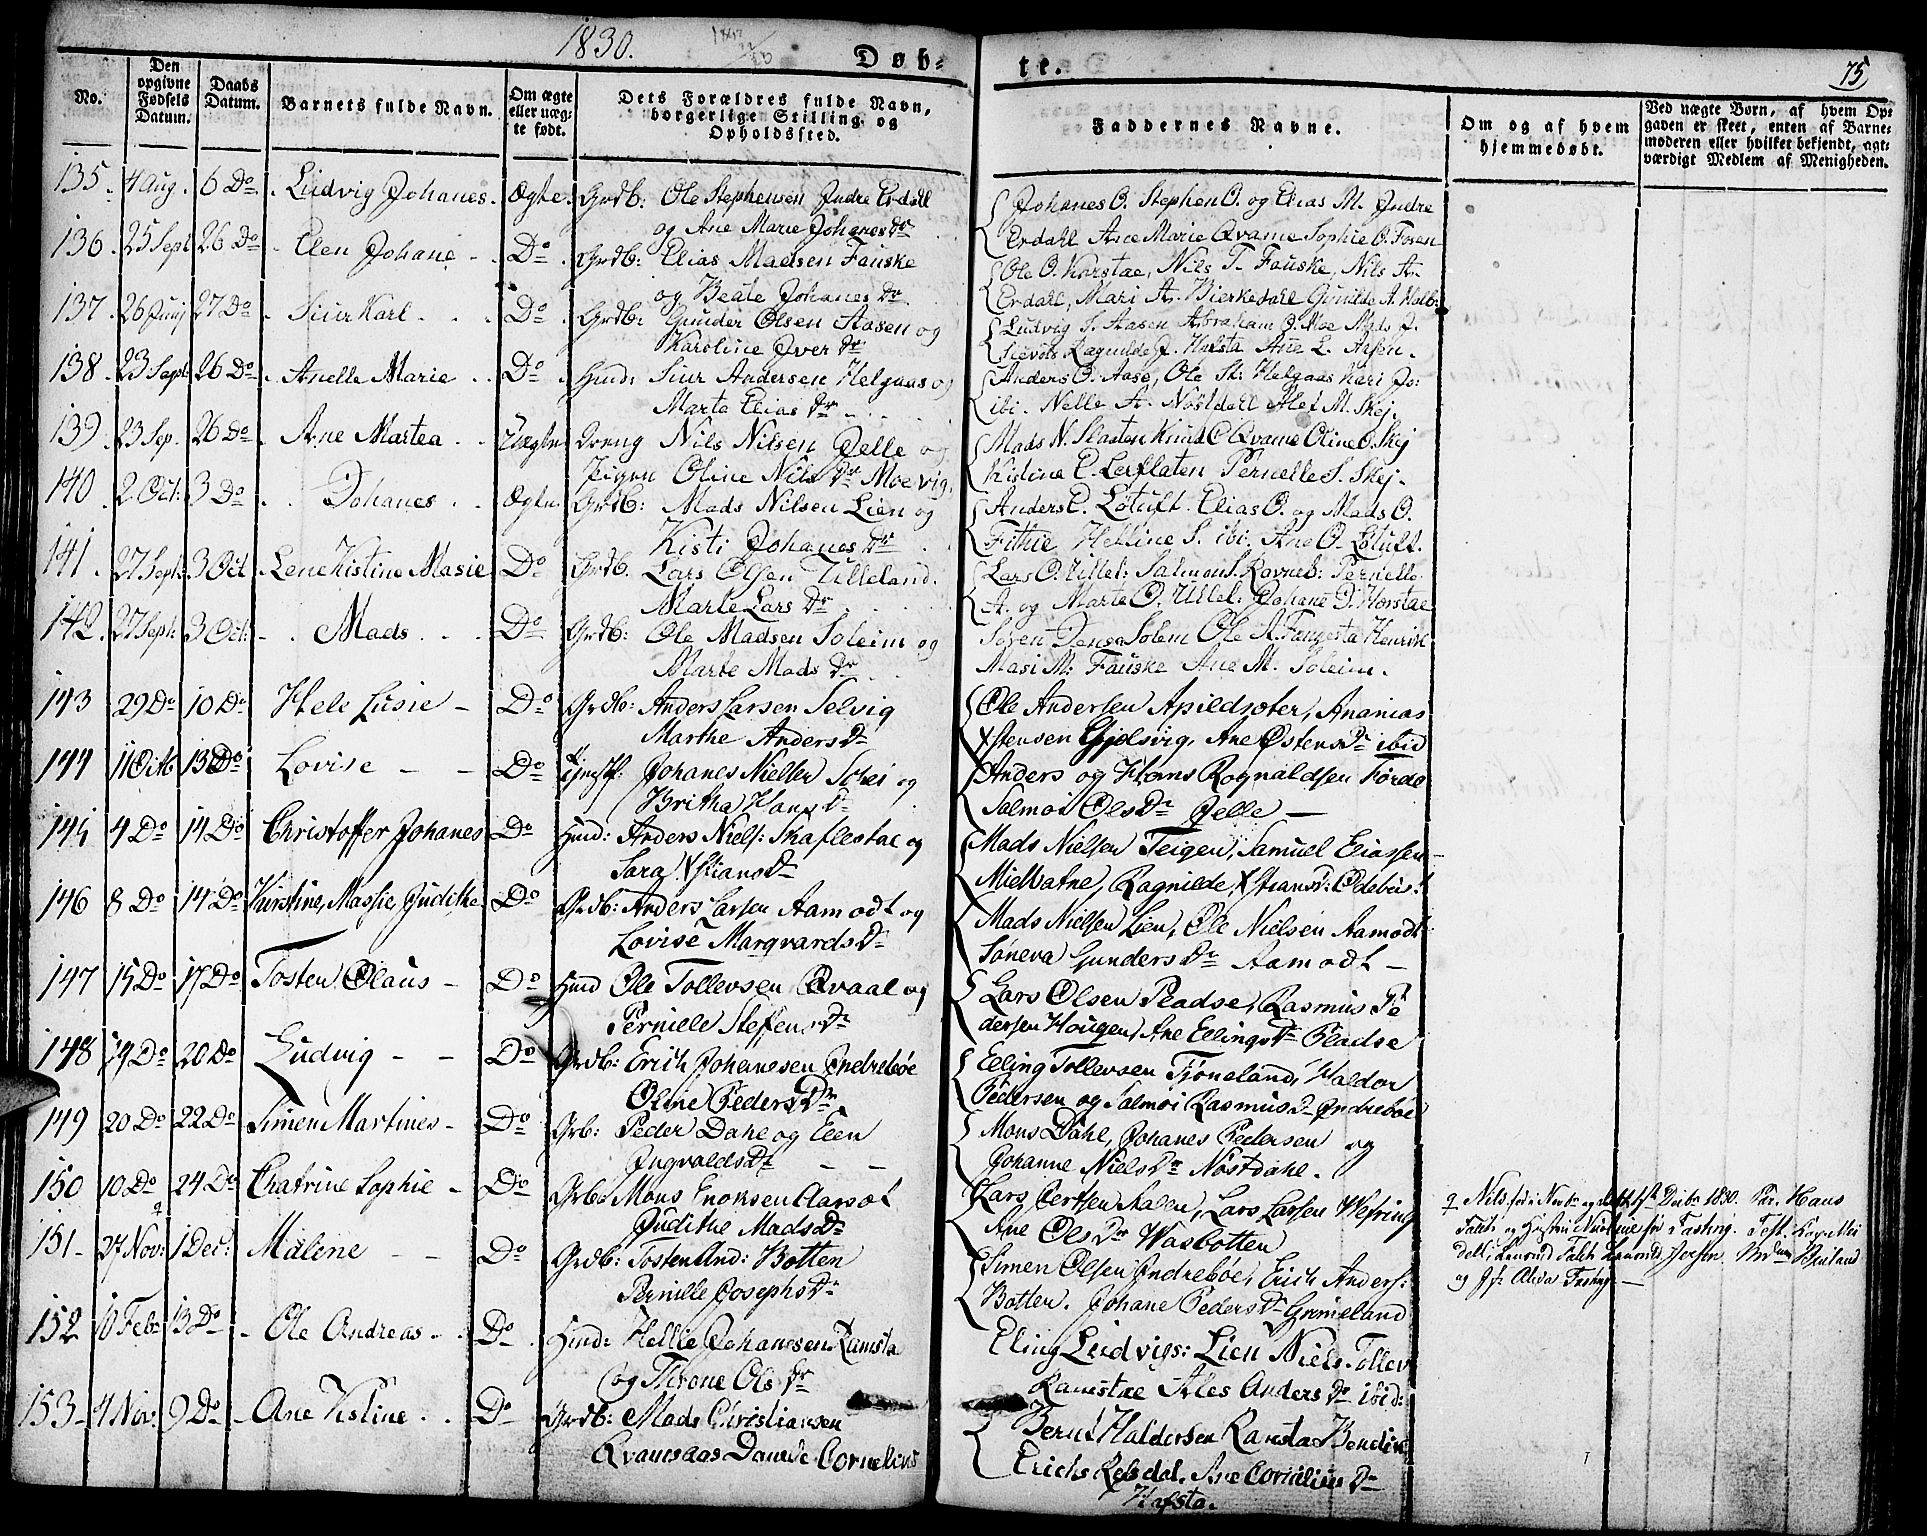 1830.
Døb-
te.
75
No.
Den opgivne Fødsels Datum.
Daabs Datum.
Barnets fulde Navn.
Om ægte eller uægte født.
Dets Forældres fulde Navn, borgerlige Stilling og Opholdssted.
Faddernes Navne.
Om og af hvem hjemmedøbt.
Ved uægte Børn, af hvem Opgaven er skeet, enten af Barnemoderen eller hvilket bekjendt, agtværdigt Medlem af Menigheden.
135. 4 Aug. 6 Do Ludvig Johanes. Ægte. Grdb: Ole Stephensen Indre Erdall
og Ane Marie Johanes Dr
Johanes O. Stephen O. og Elias M. Indre
Erdahl Ane Marie Qvame Sophie O. Fosen
136. 25 Sept 26 Do Elen Johane Do Grdb: Elias Madsen Fauske
og Beate Johanes Dr
Ole O. Horstae, Nils T. Fauske, Nils A.
Erdahl, Mari A. Bierkedahl Gunilde A. Holb:
137. 26 Juni 27 Do Siur Karl Do Grdb: Gunder Olsen Aasen og
Karoline Iver Dr
Ludvig S. Aasen Abraham O. Moe Mads J.
Ragnilde J. Hafsta Ane L. Aasen.
138. 23 Sept 26 Do Anelle Marie Do Huusd: Siur Andersen Helgaas og
Marta Elias Dr
Anders O. Aase, Ole St: Helgaas Kari Jo:
ibi. Nelle A. Nøstdall Alet M. Skej.
139. 23 Sep. 26 Do Ane Martea Uægte Dreng Nils Nilsen Jelle og
Pigen Oline Nils Dr Moevig.
Mads N. Slaatten Knud C Qvame Oline O. Skej
Kistine E. Lerflaten Pernelle S. Skej.
140. 2 Oct: 3 Do Johanes Ægte Grdb: Mads Nilsen Lien og
Kisti Johanes Dr
Anders E. Løtuft. Elias O. og Mads O.
Fithie Helline S. ibi. Ane O. Løtuft.
141. 27 Sept: 3 Oct Lene Kistine Masie Do Grdb. Lars Olsen Ulleland.
Marte Lars Dr
Lars O. Ullel: Salmon S. Ravneb: Pernelle
A. og Marte O. Ullel. Johane D. Horstae
142. 27 Sept: 3 Oct: Mads Do Grdb: Ole Madsen Soleim og
Marte Mads Dr
Søren Jensa Solem Ole A. Henrik
Masi M: Fauske Ane M. Soleim.
143 29 Do 10 Do Hele Lusie Do Grdb: Anders Larsen Selvig
Marthe Anders Dr
Ole Andersen Apildsæter, Ananias
Xstensen Gjelsvig, Ane Østens Dr ibid
144 11 Octb 13 Do Lovise Do Johanes Nielsen Schei og
Britha Hans Dr
Anders og Hans Rognaldsen Førde
Salmoi Ols Dr Jelle
145 4 Do 14 Do Christoffer Johanes Do Huusd: Anders Niels: Skaflestae og
Sara Xstians Dr
Mads Nielsen Teigen, Samuel Eliassen
Mielvatne, Ragnilde Xstians D: Ødebus:t
146 8 Do 14 Do Kirstine, Massie, Judithe Do Grdb: Anders Larsen Aamodt og
Lovise Marqvards Dr
Mads Nielsen Lien, Ole Nielsen Aamodt
Søneva Gunders Dr Aamodt
147 15 Do 17 Do Tosten Olaus Do Huusd Ole Tollevsen Qvaal og
Perniele Steffens Dr
Lars Olsen Pladse, Rasmus Pe
dersen Hougen, Ane Ellings Dr Pladse
148 19 Do 20 Do Ludvig Do Grdb: Erich Johanesen Indrebøe
Oline Peders Dr
Elling Tollevsen Tjøneland, Haldor
Pedersen og Salmoi Rasmus Dr Indrebøe
149 20 Do 22 Do Simen Martines Do Grb: Peder Dahe og Elen
Ingvalds Dr
Mons Dahl, Johanes Pedersen og
Johanne Niels Dr Nøstdahl.
150 10 Do 24 Do Chatrine Sophie Do Grb: Mons Enoksen Aarsæt
Judithe Mads Dr
Lars Bertsen Aasen, Lars Larsen Wefring
Ane Ols Dr Wasbotten
151 27 Nov: 1 Dec: Malene Do Grdb: Tosten And: Botten
Pernille Josephs Dr
Simen Olsen Indrebøe, Erich Anders:
Botten. Johane Peders Dr Grimeland
152 10 Feb 13 Do Ole Andreas Do Huusd: Helle Johanesen Ramsta
og Throne Ols Dr
Eling Ludvigs: Lien Niels Tollev
Ramstae Ales Anders Dr ibid:
153 4 Nov: 9 Do Ane Kistine Do Grdb: Mads Christiansen
Qvamsaas Danede Cornelius
Bernt Haldorsen Ramsta Bendik
Erichs Rebdal. Ane Cornelius Dr
Hafsta.